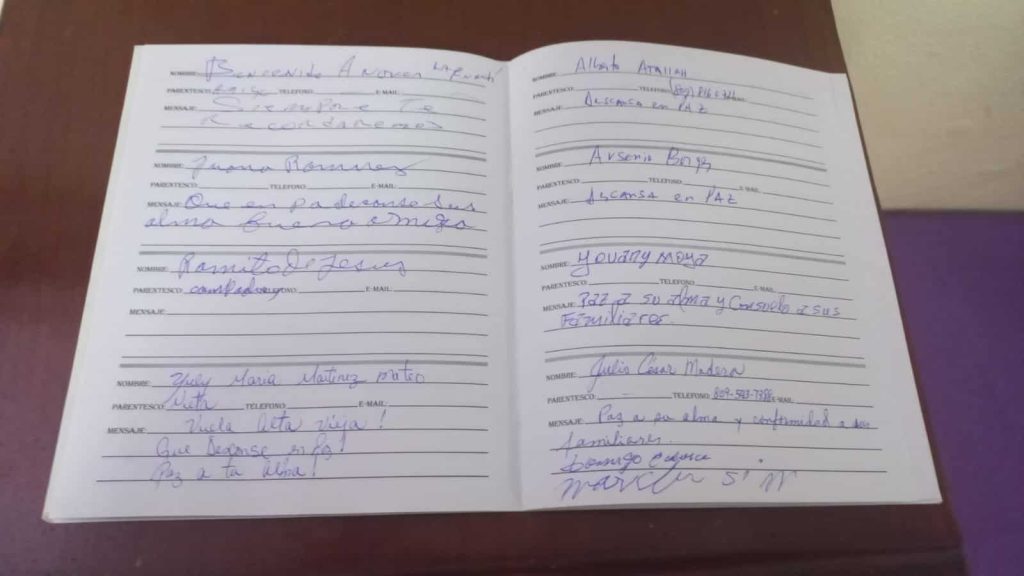 NOMBRE:
PARENTESCO: TELEFONO: E-MAIL:
MENSAJE: Siempre Te
Recordaremos
NOMBRE: Juana Ramirez
PARENTESCO: TELEFONO: E-MAIL:
MENSAJE: Que en pa decanse sus
alma buena amiga
NOMBRE: Ramito De Jesus
PARENTESCO: E-MAIL:
MENSAJE:
NOMBRE: Yuly Maria Martinez Mateo
PARENTESCO: TELEFONO: E-MAIL:
MENSAJE: Vuela Alta Vieja!
Que Descanse en Paz!
Paz a tu alma!
NOMBRE: Alberto Atallah
PARENTESCO: TELEFONO:
MENSAJE: Descansa en PAZ
NOMBRE: Arsenio Borges
PARENTESCO: TELEFONO: E-MAIL:
MENSAJE: Descansa en PAZ
NOMBRE: Yovanny Moya
PARENTESCO: TELEFONO: E-MAIL:
MENSAJE: Paz a su alma y Consuelo a sus
Familiares.
NOMBRE: Julio César Madera
PARENTESCO: TELEFONO: E-MAIL:
MENSAJE: Paz a su alma y conformidad a sus
familiares.